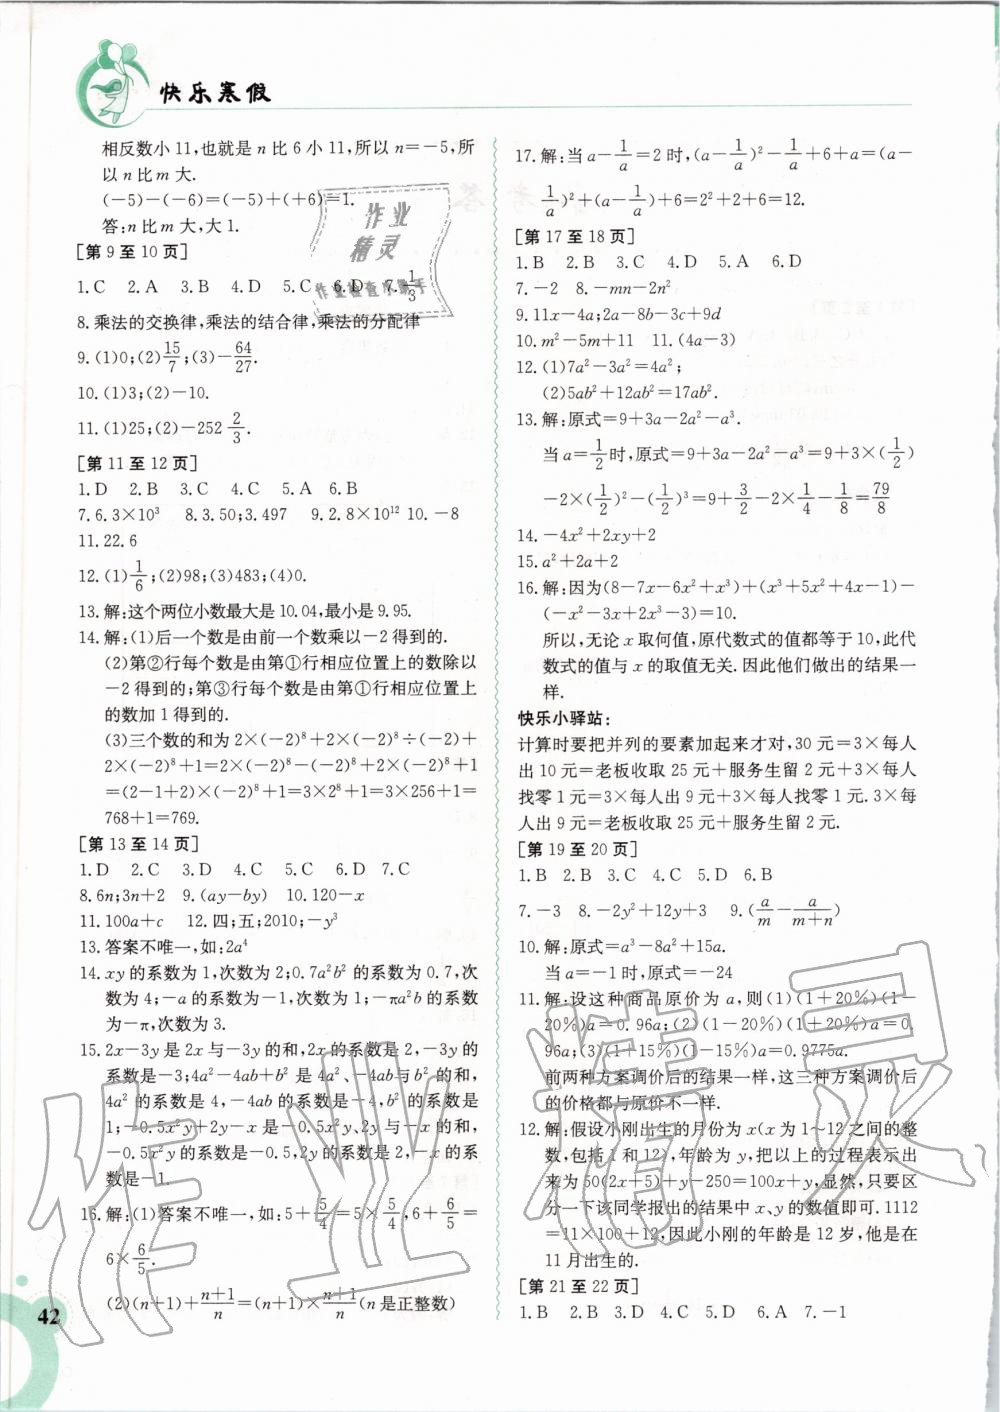 快乐寒假
相反数小11,也就是n比6小11,所以n=-5,所
以n比m大.
(-5)-(-6)=(-5)+(+6)=1.
答:n比m大,大1.
[第9至10页]
1.C 2.A 3.B 4.D 5.C 6.D 7.1/3
8.乘法的交换律,乘法的结合律,乘法的分配律
9.(1)0;(2)15/7;(3)-64/27.
10.(1)3;(2)-10.
11.(1)25;(2)-252 2/3.
[第11至12页]
1.D 2.B 3.C 4.C 5.A 6.B
7.6.3×10³ 8.3.50;3.497 9.2.8×10¹² 10.-8
11.22.6
12.(1)1/6;(2)98;(3)483;(4)0.
13.解:这个两位小数最大是10.04,最小是9.95.
14.解:(1)后一个数是由前一个数乘以-2得到的.
(2)第②行每个数是由第①行相应位置上的数除以
-2得到的;第③行每个数是由第①行相应位置上
的数加1得到的.
(3)三个数的和为2×(-2)⁸+2×(-2)⁸÷(-2)+
2×(-2)⁸+1=2×(-2)⁸-(-2)⁸+2×(-2)⁸+1
=(2-1+2)×(-2)⁸+1=3×2⁸+1=3×256+1=
768+1=769.
[第13至14页]
1.D 2.C 3.D 4.C 5.C 6.D 7.C
8.6n;3n+2 9.(ay-by) 10.120-x
11.100a+c 12.四;五;2010;-y³
13.答案不唯一,如:2a⁴
14.xy的系数为1,次数为2;0.7a²b²的系数为0.7,次
数为4;-a的系数为-1,次数为1;-πa²b的系数
为-π,次数为3.
15.2x-3y是2x与-3y的和,2x的系数是2,-3y的
系数是-3;4a²-4ab+b²是4a²、-4ab与b²的和,
4a²的系数是4,-4ab的系数是-4,b²的系数是
1;-0.5x²y+2y-x是-0.5x²y、2y与-x的和,
-0.5x²y的系数是-0.5,2y的系数是2,-x的系
数是-1.
16.解:(1)答案不唯一,如:5+5/4=5×5/4,6+6/5=
6×6/5.
(2)(n+1)+(n+1)/n=(n+1)×(n+1)/n(n是正整数)
42
17.解:当a-1/a=2时,(a-1/a)²-1/a+6+a=(a-
1/a)²+(a-1/a)+6=2²+2+6=12.
[第17至18页]
1.B 2.B 3.C 4.C 5.A 6.D
7.-2 8.-mn-2n²
9.11x-4a;2a-8b-3c+9d
10.m²-5m+11 11.(4a-3)
12.(1)7a²-3a²=4a²;
(2)5ab²+12ab²=17ab².
13.解:原式=9+3a-2a²-a³.
当a=1/2时,原式=9+3a-2a²-a³=9+3×(1/2)
-2×(1/2)²-(1/2)³=9+3/2-2×1/4-1/8=79/8
14.-4x²+2xy+2
15.a²+2a+2
16.解:因为(8-7x-6x²+x³)+(x³+5x²+4x-1)-
(-x²-3x+2x³-3)=10.
所以,无论x取何值,原代数式的值都等于10,此代
数式的值与x的取值无关.因此他们做出的结果一
样.
快乐小驿站:
计算时要把并列的要素加起来才对,30元=3×每人
出10元=老板收取25元+服务生留2元+3×每人
找零1元=3×每人出9元+3×每人找零1元.3×每
人出9元=老板收取25元+服务生留2元.
[第19至20页]
1.B 2.B 3.C 4.C 5.D 6.B
7.-3 8.-2y²+12y+3 9.(a/m-a/(m+n))
10.解:原式=a³-8a²+15a.
当a=-1时,原式=-24
11.解:设这种商品原价为a,则(1)(1+20%)(1-
20%)a=0.96a;(2)(1-20%)(1+20%)a=0.
96a;(3)(1+15%)(1-15%)a=0.9775a.
前两种方案调价后的结果一样,这三种方案调价后
的价格都与原价不一样.
12.解:假设小刚出生的月份为x(x为1~12之间的整
数,包括1和12),年龄为y,把以上的过程表示出
来为50(2x+5)+y-250=100x+y,显然,只要区
分一下该同学报出的结果中x、y的数值即可.1112
=11×100+12,因此小刚的年龄是12岁,他是在
11月出生的.
[第21至22页]
1.B 2.B 3.D 4.C 5.D 6.A 7.-1
作业
精灵
作业检查小助手
作业精灵